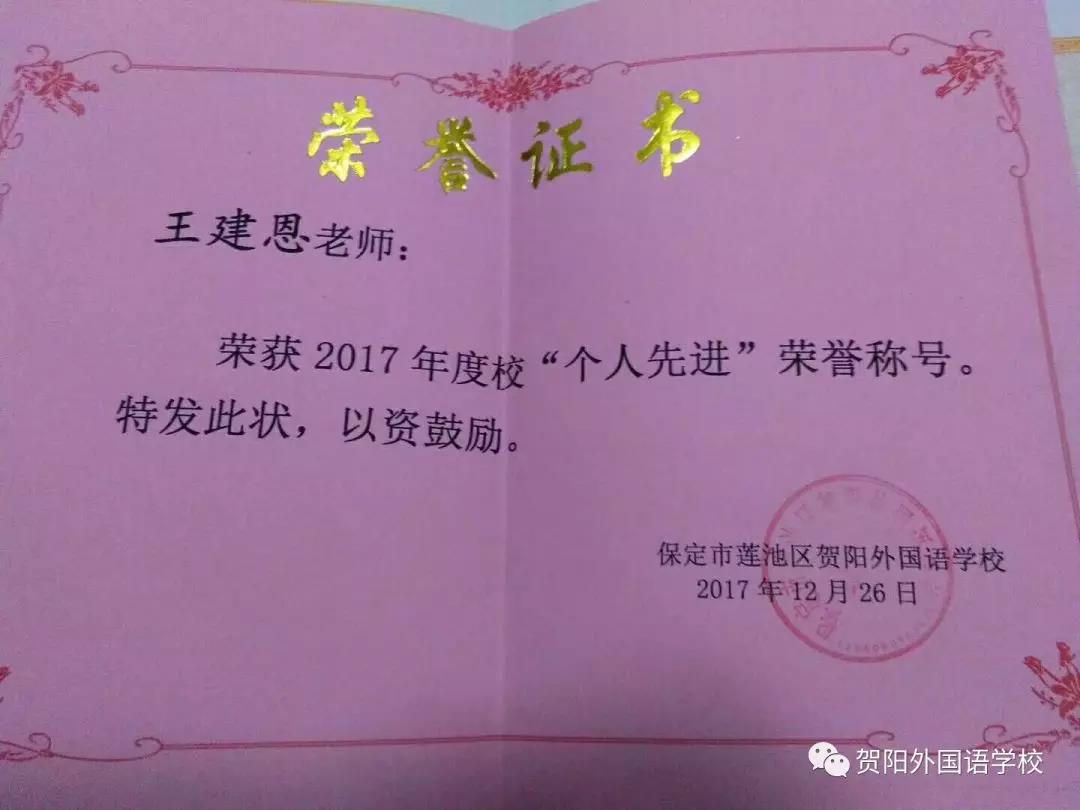 荣誉证书
王建恩老师：
荣获 2017 年度校“个人先进”荣誉称号。
特发此状，以资鼓励。
保定市莲池区贺阳外国语学校
2017 年 12 月 26 日
贺阳外国语学校